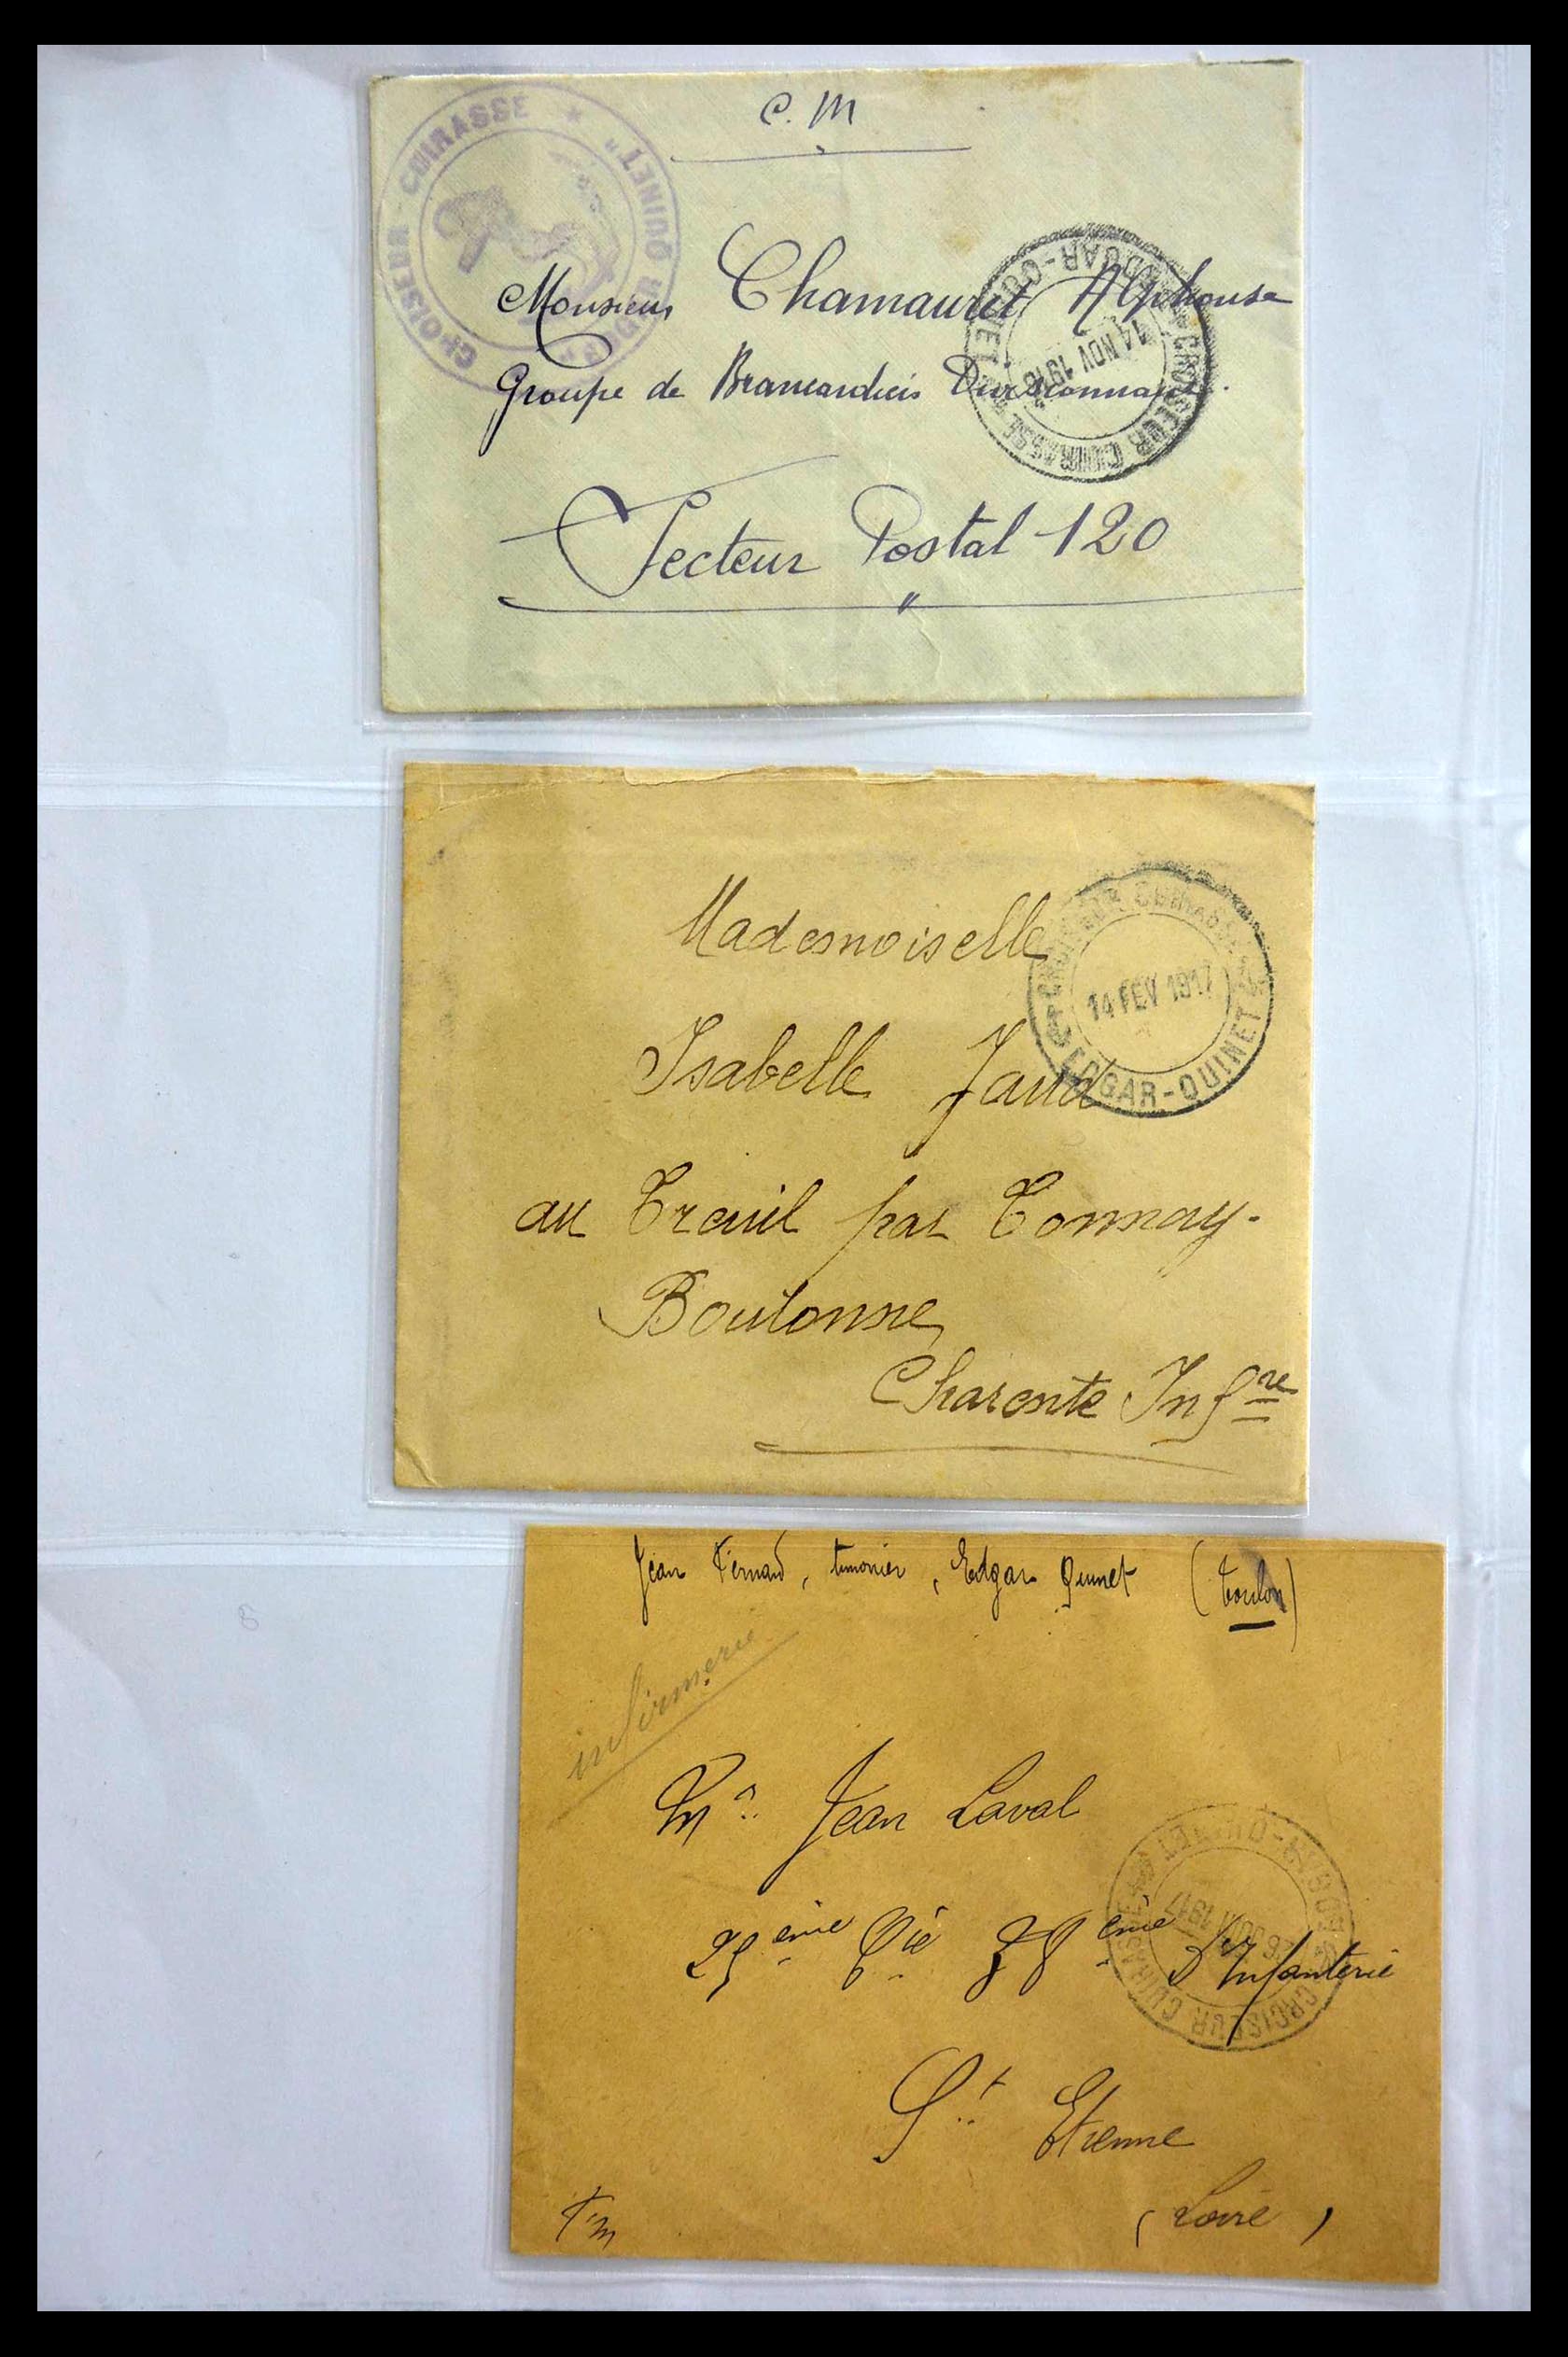 C. M
CROISEUR-CUIRASSÉ * "EDGER QUINET"
Monsieur Chamauret Alphonse
Groupe de Brancardiers Divisionnaires.
CROISEUR CUIRASSE EDGAR-QUINET
14 NOV 191
Secteur Postal 120
Mademoiselle
CROISEUR CUIRASSE EDGAR-QUINET
14 FEV 1917
Isabelle Jaud
au Treuil par Tonnay-
Boutonne
Charente Infre
Jean Fernand, timonier, Edgar Quinet (Toulon)
infirmerie
Mr. Jean Laval
25ème Cie 38ème D'Infanterie
CROISEUR CUIRASSE EDGAR-QUINET
1917
St Etienne
(Loire)
F.m